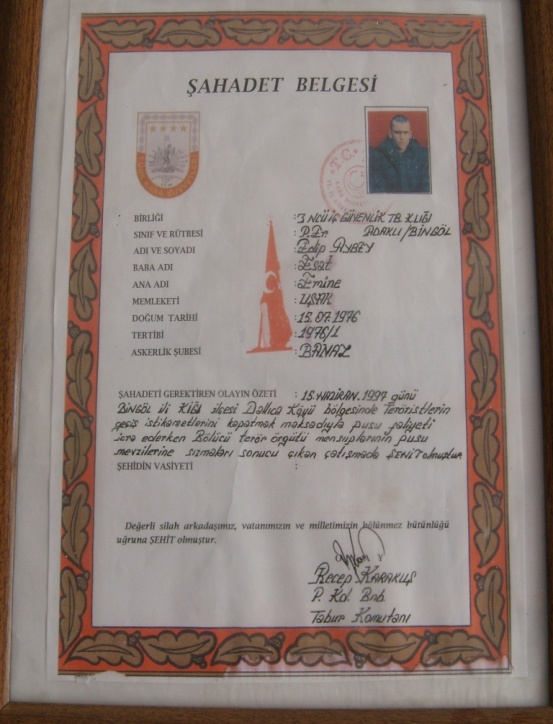 ŞAHADET BELGESİ
T.C.
BİRLİĞİ : 3 NCÜ İÇ GÜVENLİK TB. K.LIĞI
ADAKLI/BİNGÖL
SINIF VE RÜTBESİ : P. Er
ADI VE SOYADI : Edip AYBEY
BABA ADI : Esat
ANA ADI : Emine
MEMLEKETİ : UŞAK
DOĞUM TARİHİ : 15.07.1976
TERTİBİ : 1976/1
ASKERLİK ŞUBESİ : BANAZ
ŞAHADETİ GEREKTİREN OLAYIN ÖZETİ : 15 HAZİRAN. 1997 günü
BİNGÖL ili KİĞI ilçesi Dallıca Köyü bölgesinde Teröristlerin
geçiş istikametlerini kapatmak maksadıyla pusu faliyeti
icra ederken Bölücü terör örgütü mensuplarının pusu
mevzilerine sızmaları sonucu çıkan çatışmada ŞEHİT olmuştur
ŞEHİDİN VASİYETİ :
Değerli silah arkadaşımız, vatanımızın ve milletimizin bölünmez bütünlüğü
uğruna ŞEHİT olmuştur.
Recep KARAKUŞ
P. Kd. Bnb.
Tabur Komutanı